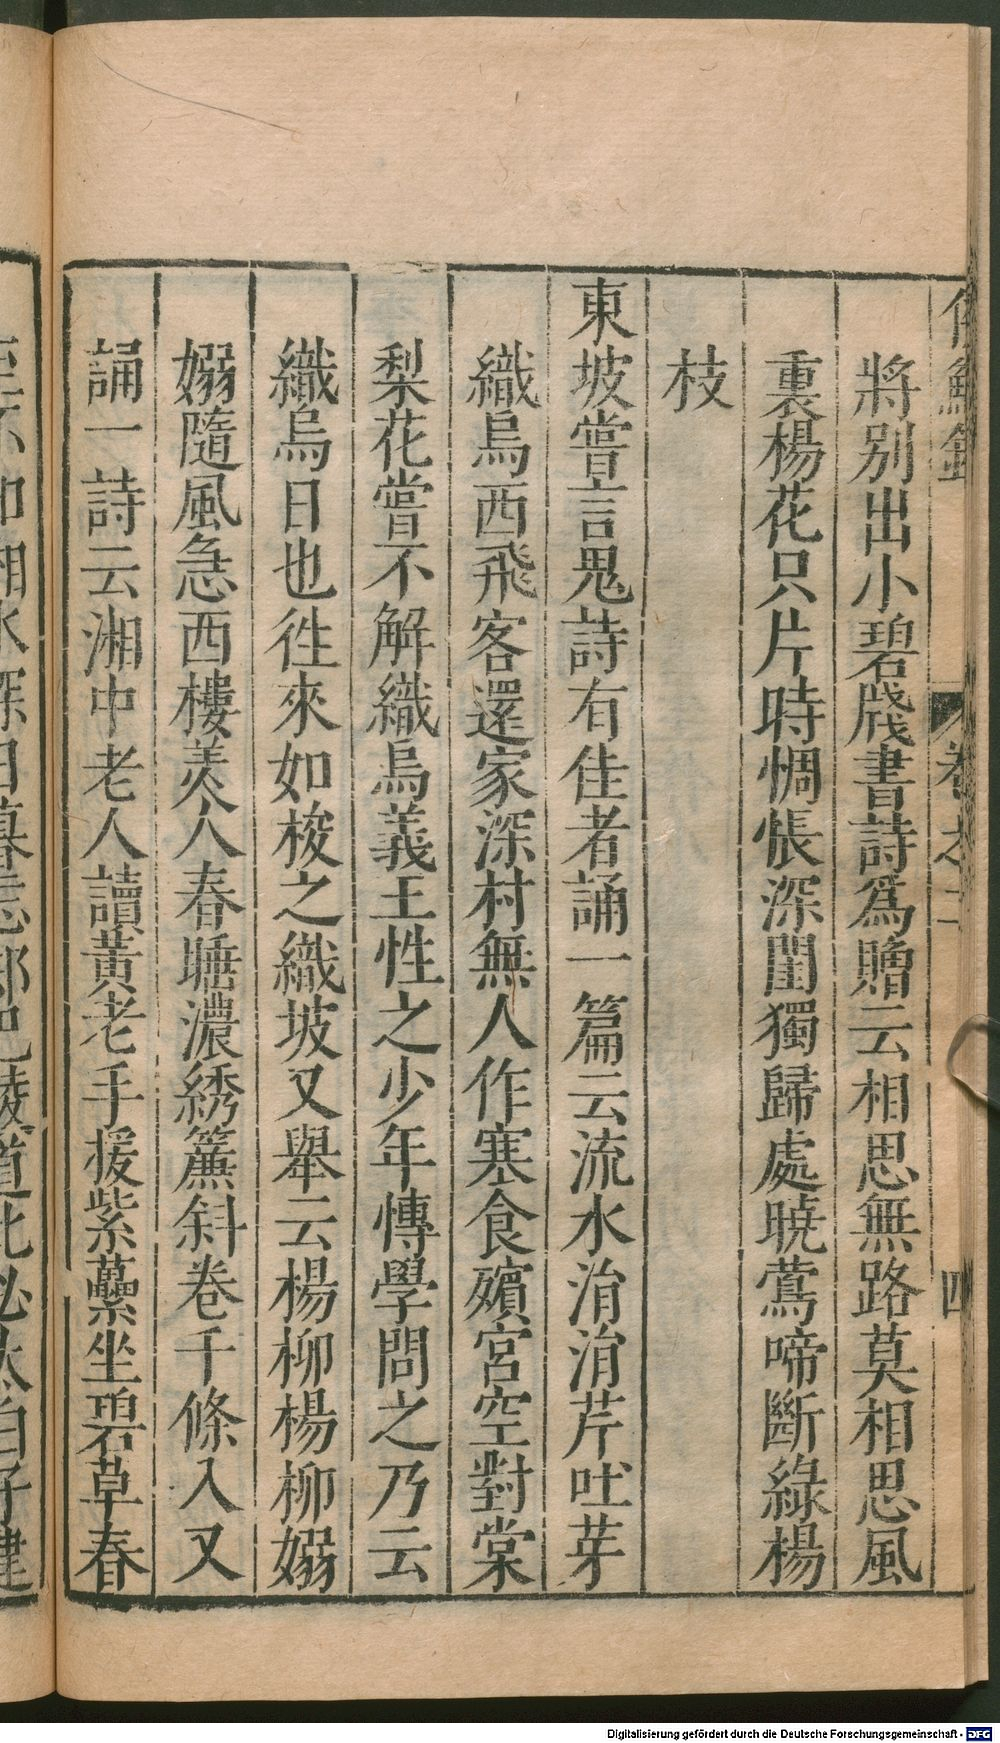 將别出小碧牋書詩爲贈云相思無路莫相思風
裏楊花只片時惆悵深閨獨歸處曉鶯啼斷綠楊
枝
東坡嘗言鬼詩有佳者誦一篇云流水涓涓芹吐芽
織烏西飛客還家深村無人作寒食殯宮空對棠
梨花嘗不解織烏義王性之少年愽學問之乃云
織烏日也徃來如梭之織坡又舉云楊柳楊柳嫋
嫋隨風急西樓美人春睡濃綉簾斜卷千條入又
誦一詩云湘中老人讀黃老手援紫蘽坐碧草春
Digitalisierung gefördert durch die Deutsche Forschungsgemeinschaft - DFG